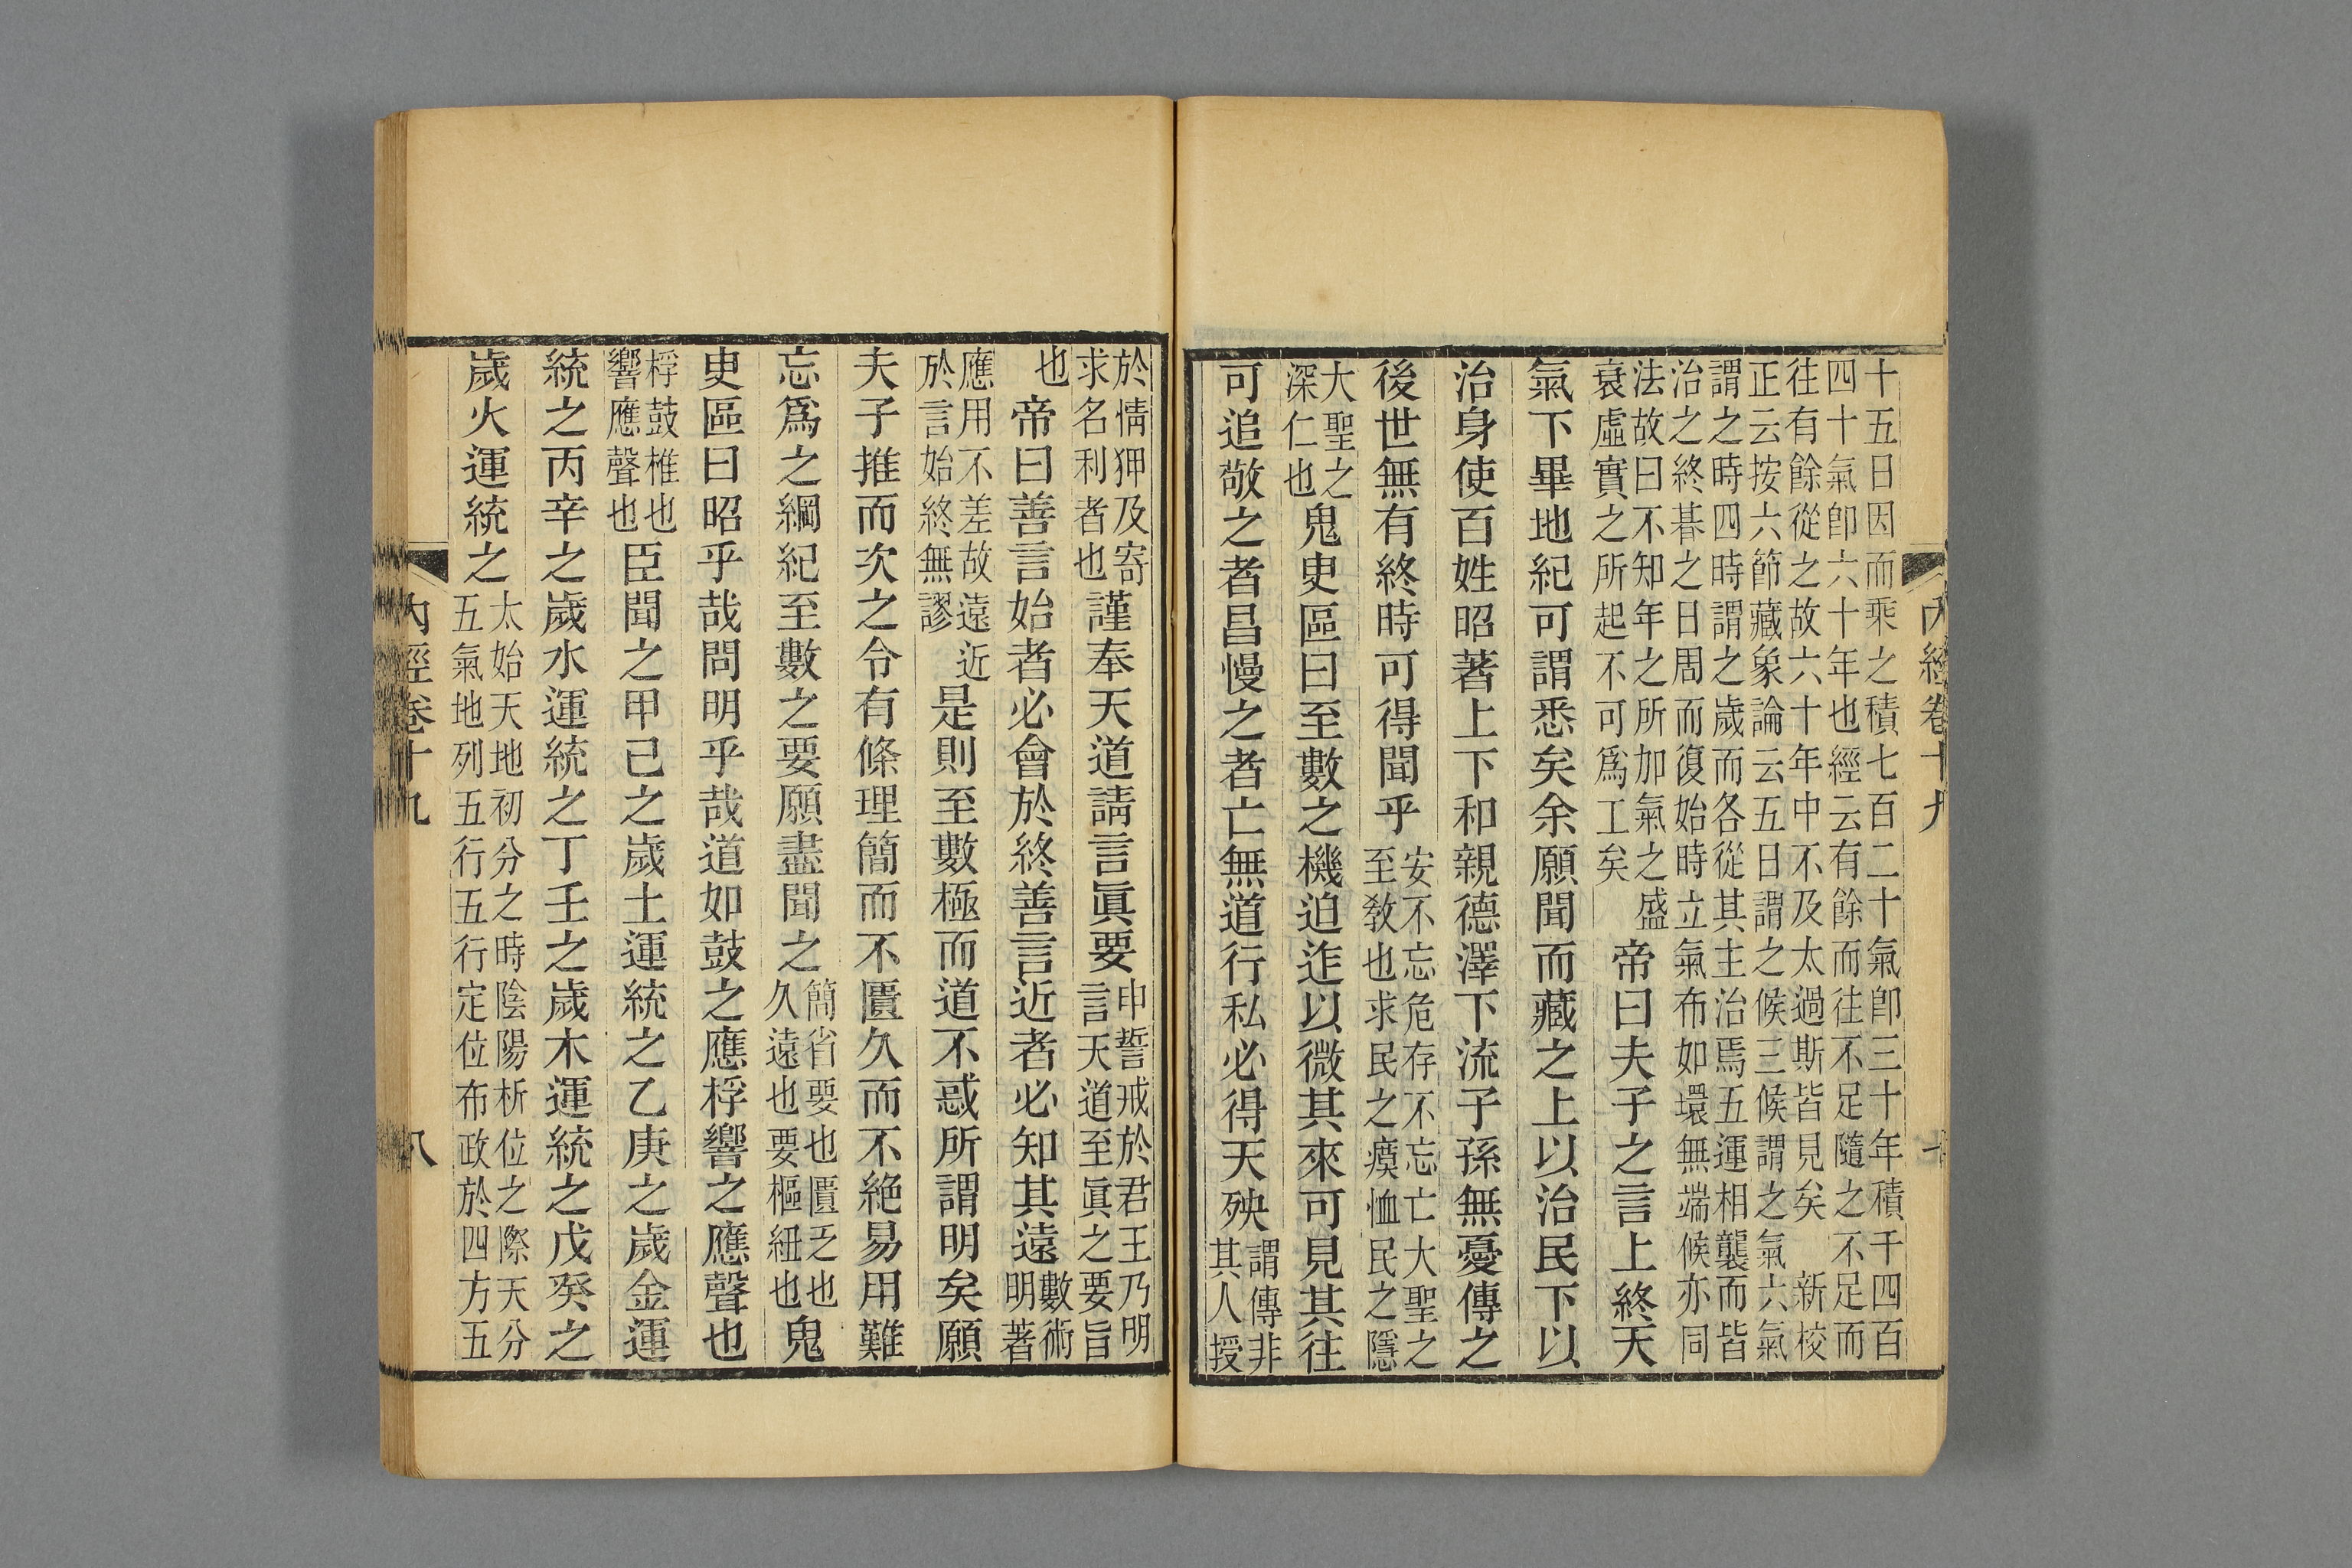 十五日因而乘之積七百二十氣卽三十年積千四百
四十氣卽六十年也經云有餘而往不足隨之不足而
往有餘從之故六十年中不及太過斯皆見矣 新校
正云按六節藏象論云五日謂之候三候謂之氣六氣
謂之時四時謂之歲而各從其主治焉五運相襲而皆
治之終朞之日周而復始時立氣布如環無端候亦同
法故曰不知年之所加氣之盛衰虛實之所起不可爲工矣帝曰夫子之言上終天
氣下畢地紀可謂悉矣余願聞而藏之上以治民下以
治身使百姓昭著上下和親德澤下流子孫無憂傳之
後世無有終時可得聞乎安不忘危存不忘亡大聖之至教也求民之瘼恤民之隱
大聖之深仁也鬼臾區曰至數之機迫迮以微其來可見其往
可追敬之者昌慢之者亡無道行私必得天殃謂傳非其人授
於情狎及寄求名利者也謹奉天道請言眞要申誓戒於君王乃明言天道至眞之要旨
也帝曰善言始者必會於終善言近者必知其遠數術明著
應用不差故遠近於言始終無謬是則至數極而道不惑所謂明矣願
夫子推而次之令有條理簡而不匱久而不絶易用難
忘爲之綱紀至數之要願盡聞之簡省要也匱乏也久遠也要樞紐也鬼
臾區曰昭乎哉問明乎哉道如鼓之應桴響之應聲也
桴鼓椎也響應聲也臣聞之甲己之歲土運統之乙庚之歲金運
統之丙辛之歲水運統之丁壬之歲木運統之戊癸之
歲火運統之太始天地初分之時陰陽析位之際天分五氣地列五行五行定位布政於四方五
內經卷十九 八
內經卷十九